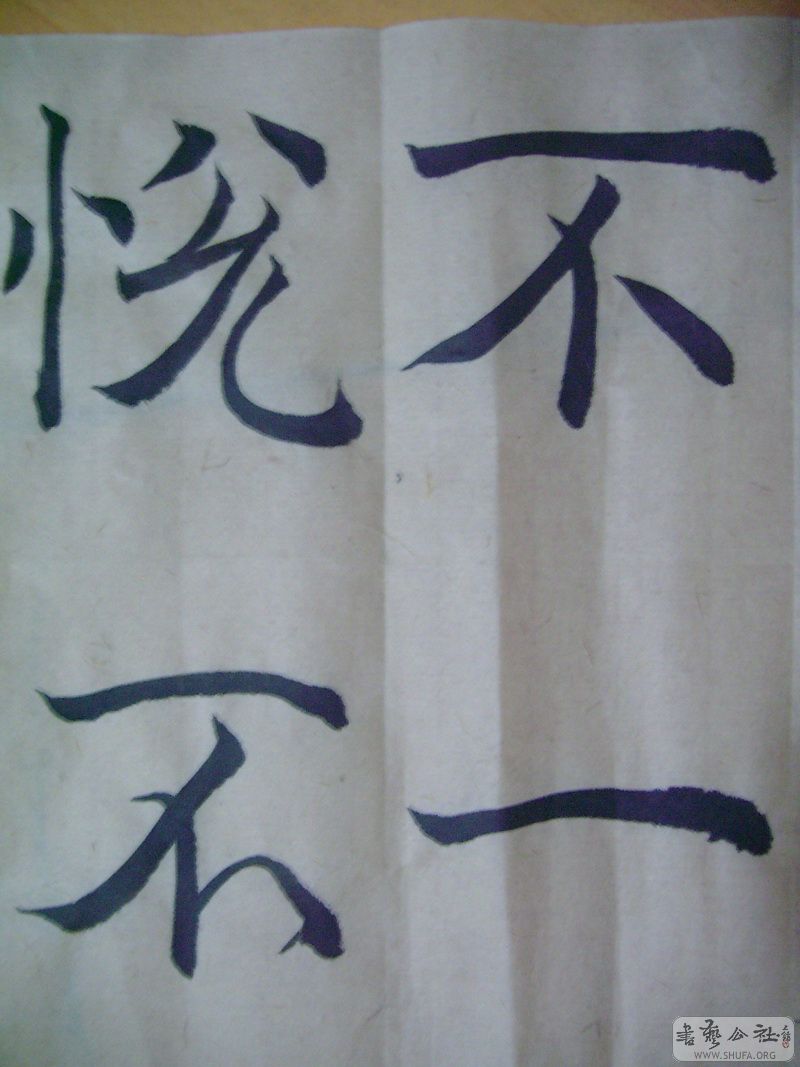 不一
悦不
書藝公社
WWW.SHUFA.ORG